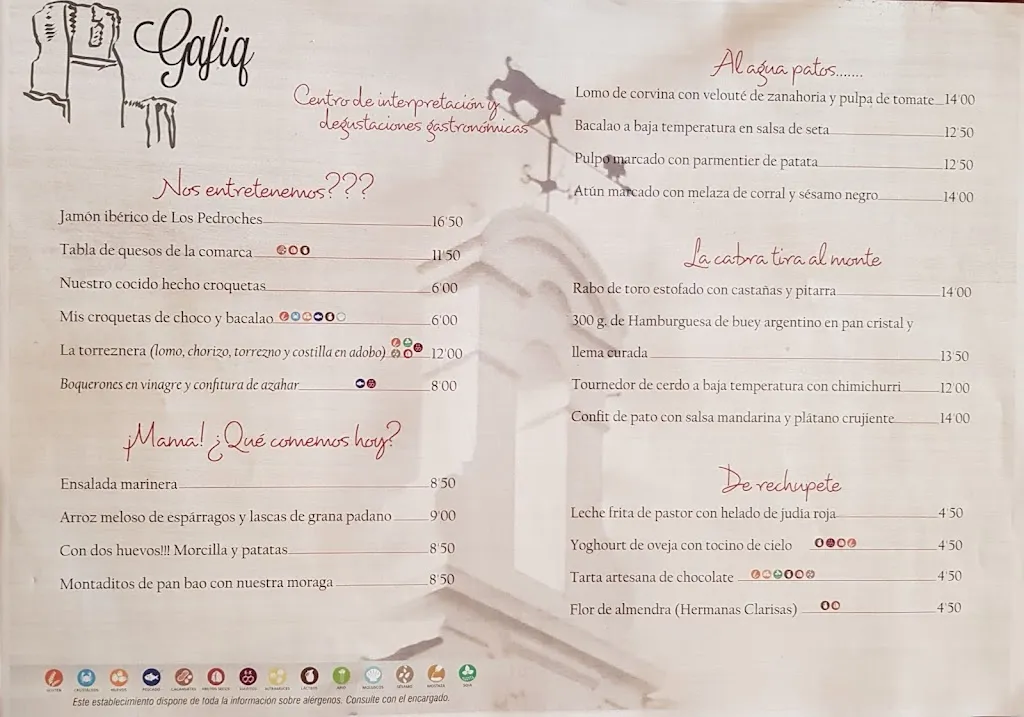 Gafiq
Centro de interpretación y
degustaciones gastronómicas
Nos entretenemos???
Jamón ibérico de Los Pedroches 16'50
Tabla de quesos de la comarca 11'50
Nuestro cocido hecho croquetas 6'00
Mis croquetas de choco y bacalao 6'00
La torreznera (lomo, chorizo, torrezno y costilla en adobo) 12'00
Boquerones en vinagre y confitura de azahar 8'00
¡Mama! ¿Qué comemos hoy?
Ensalada marinera 8'50
Arroz meloso de espárragos y lascas de grana padano 9'00
Con dos huevos!!! Morcilla y patatas 8'50
Montaditos de pan bao con nuestra moraga 8'50
Al agua patos.......
Lomo de corvina con velouté de zanahoria y pulpa de tomate 14'00
Bacalao a baja temperatura en salsa de seta 12'50
Pulpo marcado con parmentier de patata 12'50
Atún marcado con melaza de corral y sésamo negro 14'00
La cabra tira al monte
Rabo de toro estofado con castañas y pitarra 14'00
300 g. de Hamburguesa de buey argentino en pan cristal y
llema curada 13'50
Tournedor de cerdo a baja temperatura con chimichurri 12'00
Confit de pato con salsa mandarina y plátano crujiente 14'00
De rechupete
Leche frita de pastor con helado de judía roja 4'50
Yoghourt de oveja con tocino de cielo 4'50
Tarta artesana de chocolate 4'50
Flor de almendra (Hermanas Clarisas) 4'50
GLUTEN CRUSTÁCEOS HUEVOS PESCADO CACAHUETES FRUTOS SECOS SULFITOS ALTRAMUCES LÁCTEOS APIO MOLUSCOS SÉSAMO MOSTAZA SOJA
Este establecimiento dispone de toda la información sobre alérgenos. Consulte con el encargado.